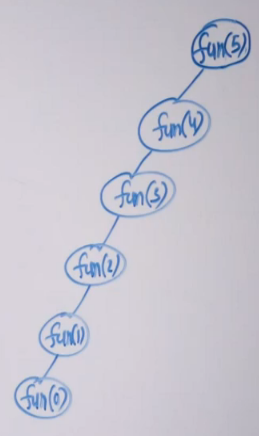 fun(5)
fun(4)
fun(3)
fun(2)
fun(1)
fun(0)